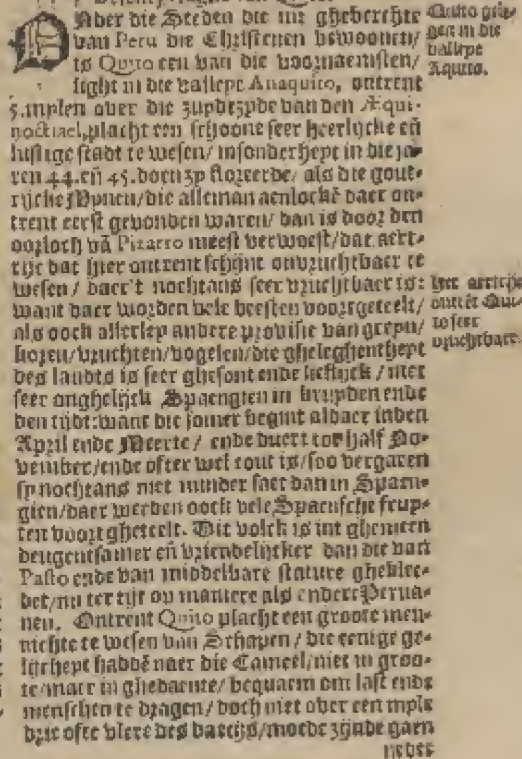 ONder die Steden die int gheberchte
van Peru die Christenen bewoonen/
is Quito een van die voornaemsten/
light in die valleye Anaquito, ontrent
5. mylen over die zuydtzyde van den Æqui-
noctiael, placht een schoone seer heerlycke eñ
lustige stadt te wesen/ insonderheyt in die ja-
ren 44. eñ 45. doen zy floreerde/ als die gout-
rijcke Mynen/ die alleman aenlockẽ daer on-
trent eerst gevonden waren/ dan is door den
oorloch vã Pizarro meest verwoest/ dat aert-
rijc dat hier ontrent schijnt onvruchtbaer te
wesen/ daer't nochtans seer vruchtbaer is:
want daer worden vele beesten voortgeteelt/
als oock allerley andere provisie van greyn/
koren/ vruchten/ vogelen/ die gheleghentheyt
des landts is seer ghesont ende lieflijck/ niet
seer onghelijck Spaengien in kruyden ende
den tijdt: want die somer begint aldaer inden
April ende Meerte/ ende duert tot half No-
vember/ ende ofter wel cout is/ soo vergaren
sy nochtans niet minder saet dan in Spaen-
gien/ daer werden oock vele Spaensche fruy-
ten voort gheteelt. Dit volck is int ghemeen
deugentsamer eñ vriendelijcker dan die van
Pasto ende van middelbare stature gheklee-
det/ nu ter tijt op maniere als andere Perua-
nen. Ontrent Quito placht een groote men-
nichte te wesen van Schapen/ die eenige ge-
lijcheyt haddẽ naer die Cameel/ niet in groo-
te/ maer in ghedaente/ bequaem om last ende
menschen te dragen/ doch niet over een myle
drie ofte viere des daechs/ moede zijnde gaen
neder
Quito gele-
gen in die
valleye
Aquito.
Het aertrijc
omtrẽt Qui-
to seer
vruchtbaer.